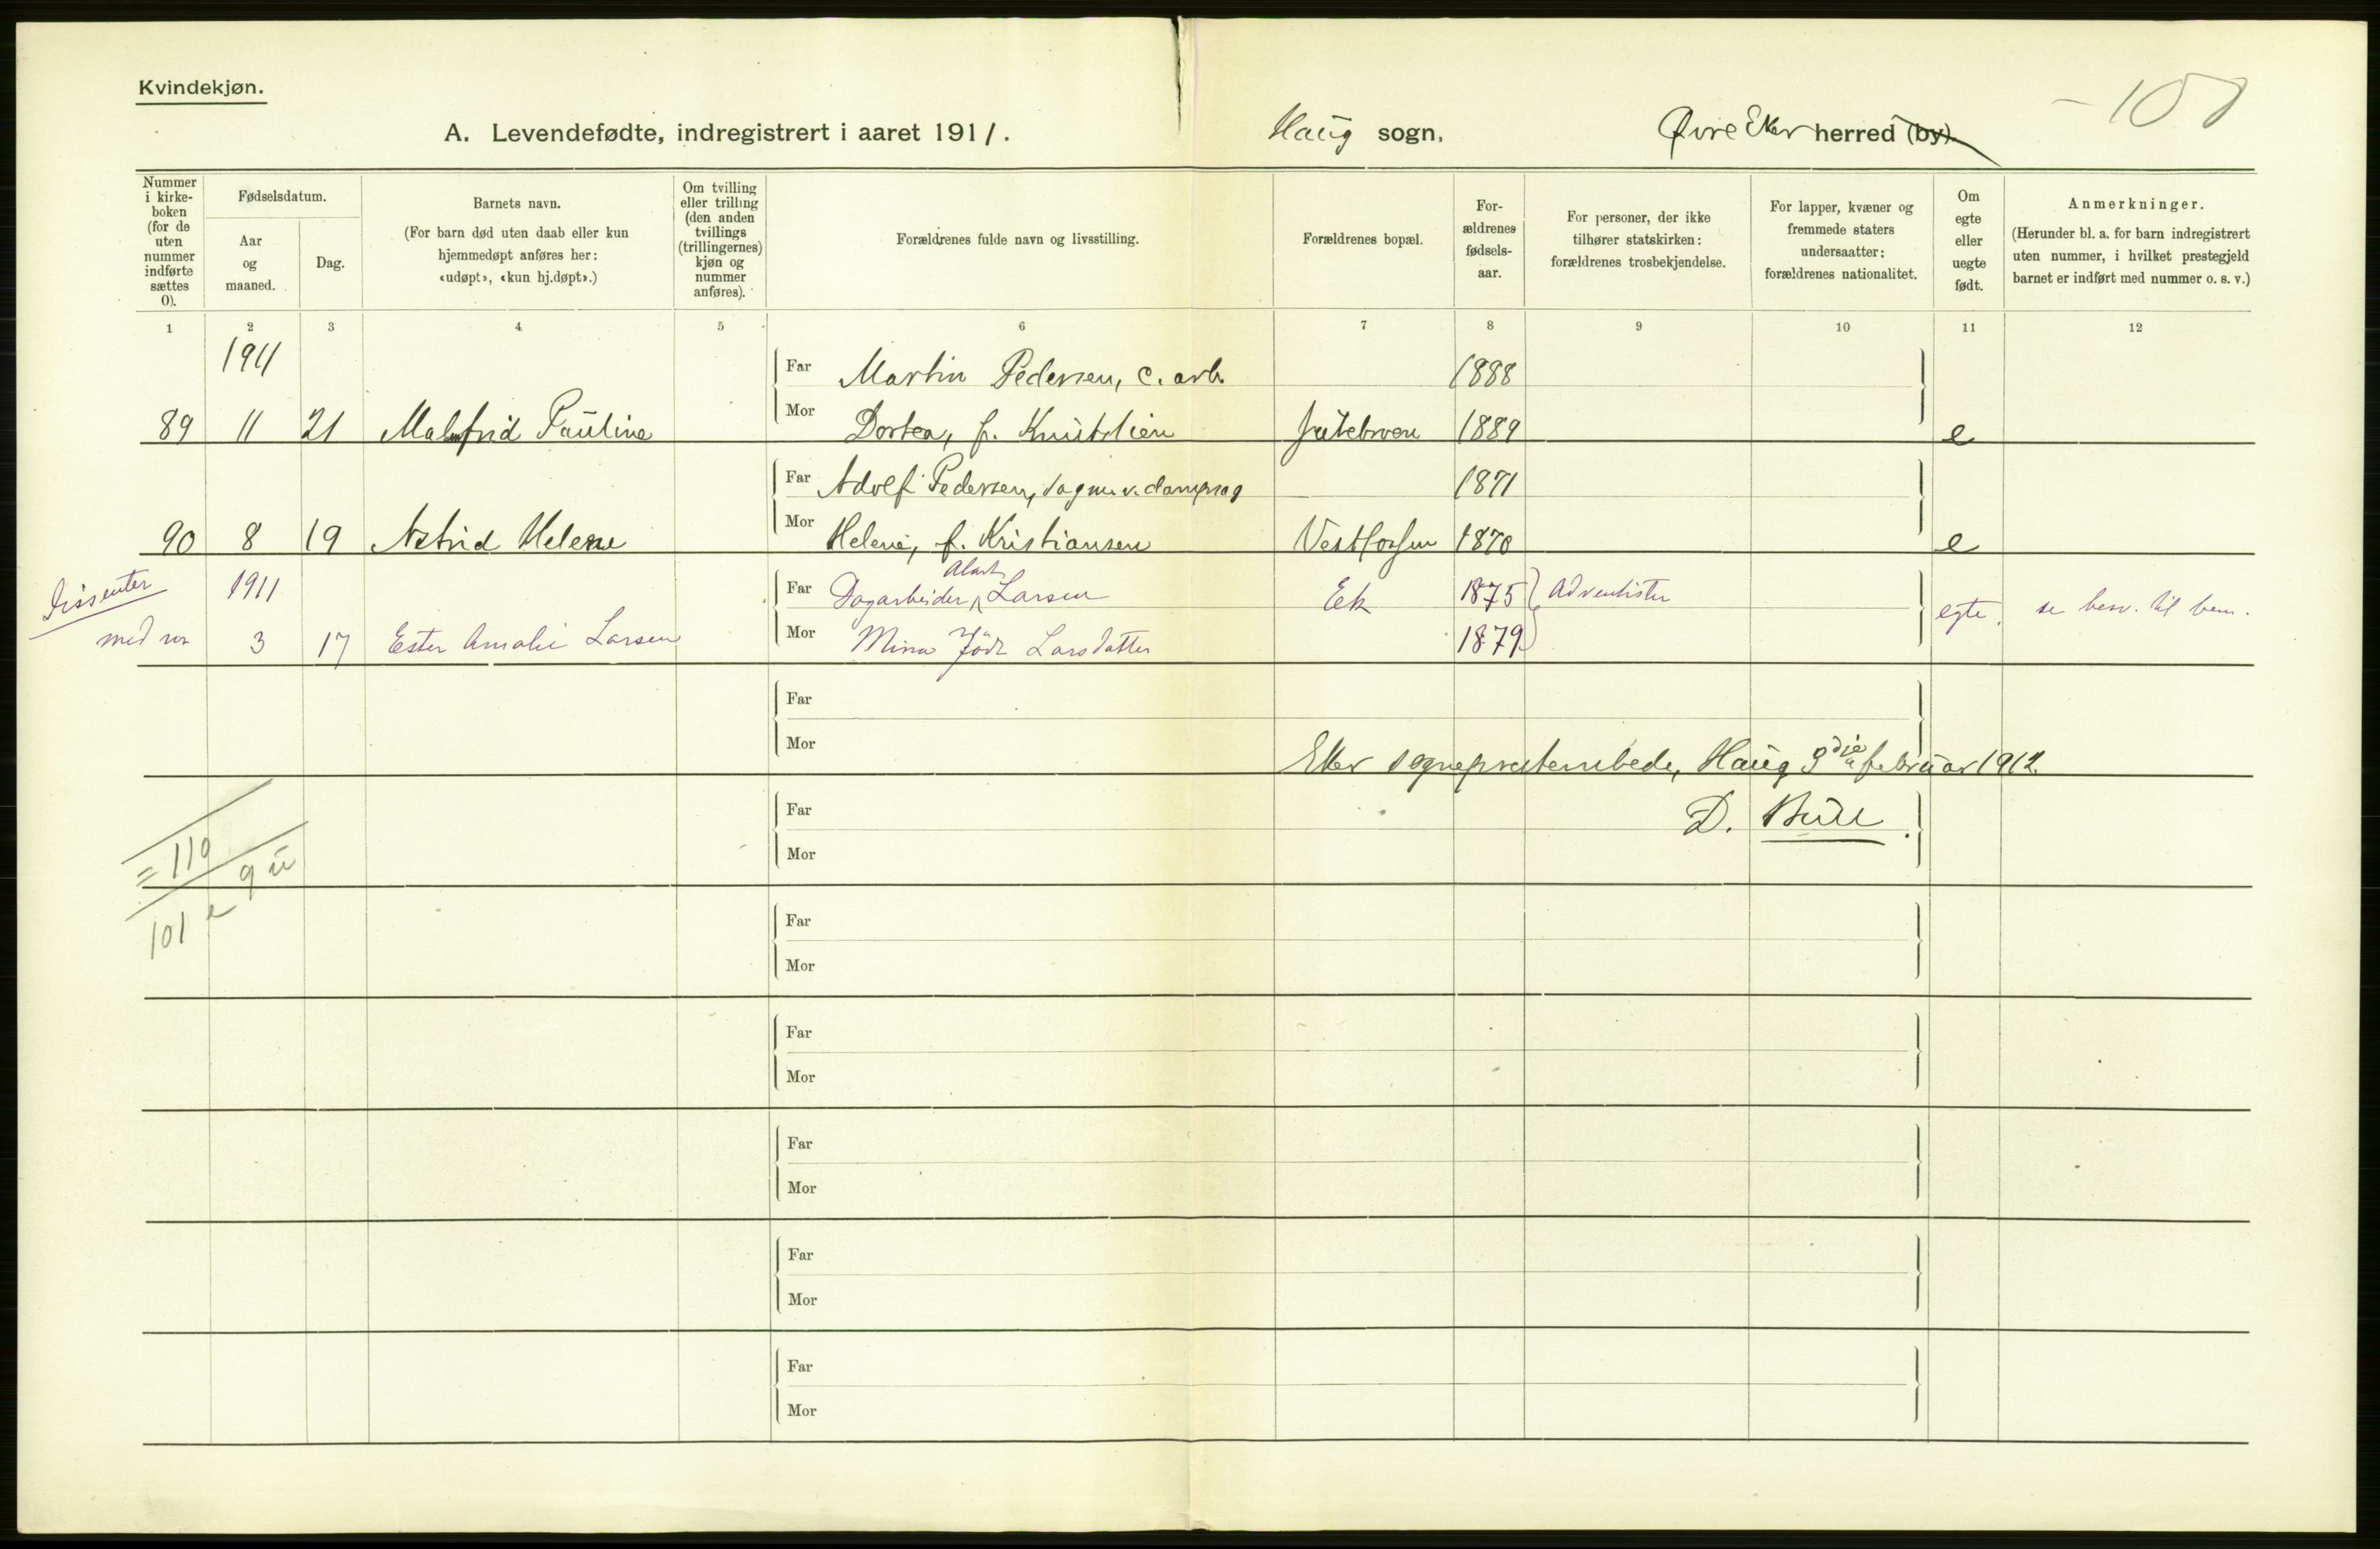 Kvindekjøn.
A. Levendefødte, indregistrert i aaret 1911.
Haug sogn, Øvre Eker herred (by).
Nummer i kirke-boken (for de uten nummer indførte sættes 0).
Fødselsdatum.
Aar og maaned.
Dag.
Barnets navn.
(For barn død uten daab eller kun hjemmedøpt anføres her: «udøpt», «kun hj.døpt».)
Om tvilling eller trilling (den anden tvillings (trillingernes) kjøn og nummer anføres).
Forældrenes fulde navn og livsstilling.
Forældrenes bopæl.
For-ældrenes fødsels-aar.
For personer, der ikke tilhører statskirken: forældrenes trosbekjendelse.
For lapper, kvæner og fremmede staters undersaatter: forældrenes nationalitet.
Om egte eller uegte født.
Anmerkninger.
(Herunder bl. a. for barn indregistrert uten nummer, i hvilket prestegjeld barnet er indført med nummer o. s. v.)
1 2 3 4 5 6 7 8 9 10 11 12
1911
Far Martin Pedersen, c. arb. 1888
89 11 21 Malmfrid Pauline Mor Dortea, f. 1889 e
Far Adolf Pedersen, sagm. v. dampsag 1871
90 8 19 Astrid Helene Mor Helene, f. Kristiansen Vestfossen 1870 e
Dissenter 1911 Far Dagarbeider Larsen Ek 1875 Adventister egte. se besv. til bem.
med no 3 17 Ester Amalie Larsen Mor Mina född Larsdatter 1879
Far
Mor
Eker sogneprestembede, Haug februar 1912.
Far
D. Bull.
Mor
= 110
9 u
101 e
Far
Mor
Far
Mor
Far
Mor
Far
Mor
Far
Mor